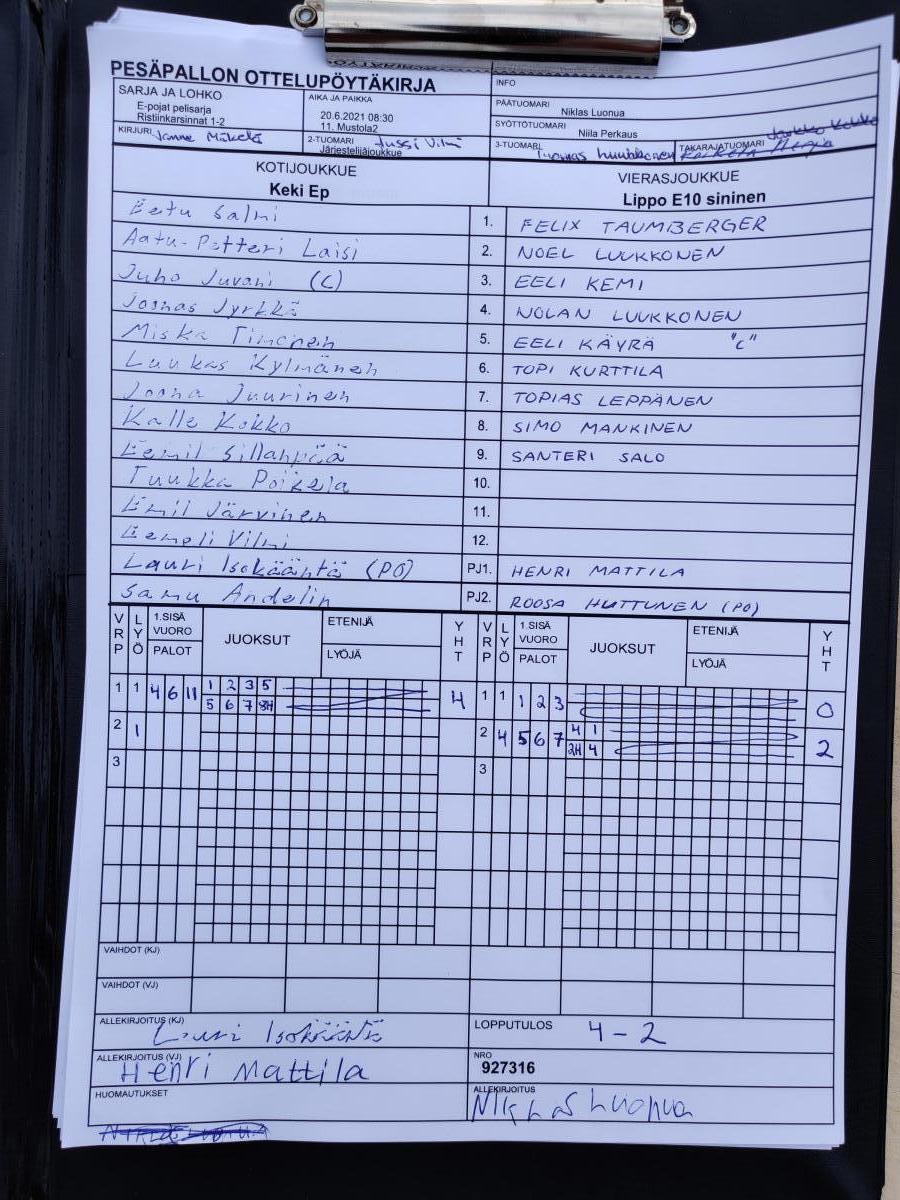 PESÄPALLON OTTELUPÖYTÄKIRJA
INFO
SARJA JA LOHKO
E-pojat pelisarja
Ristiinkarsinnat 1-2
AIKA JA PAIKKA
20.6.2021 08:30
11. Mustola2
PÄÄTUOMARI
Niklas Luonua
SYÖTTÖTUOMARI
Niila Perkaus
KIRJURI Janne Mäkelä
2-TUOMARI Jussi Vilmi
Järjestelijäjoukkue
3-TUOMARI Tuomas Luukkonen
TAKARAJATUOMARI
KOTIJOUKKUE
Keki Ep
VIERASJOUKKUE
Lippo E10 sininen
Eetu Salmi 1. FELIX TAUMBERGER
Aatu-Petteri Laisi 2. NOEL LUUKKONEN
Juho Juvani (C) 3. EELI KEMI
Joonas Jyrkkä 4. NOLAN LUUKKONEN
Miska Timonen 5. EELI KÄYRÄ "C"
Luukas Kylmänen 6. TOPI KURTTILA
Joona Juurinen 7. TOPIAS LEPPÄNEN
Kalle Kokko 8. SIMO MANKINEN
Eemil Sillanpää 9. SANTERI SALO
Tuukka Poikela 10.
Emil Järvinen 11.
Eemeli Vilmi 12.
Lauri Isokääntä (PO) PJ1. HENRI MATTILA
Samu Andelin PJ2. ROOSA HUTTUNEN (PO)
VRP LYÖ 1.SISÄ VUORO PALOT JUOKSUT ETENIJÄ LYÖJÄ YHT VRP LYÖ 1.SISÄ VUORO PALOT JUOKSUT ETENIJÄ LYÖJÄ YHT
1 1 4 6 11 1 2 3 5 4 1 1 1 2 3 0
5 6 7 8H
2 1 2 4 5 6 7 4 1 2
2H 4
3 3
VAIHDOT (KJ)
VAIHDOT (VJ)
ALLEKIRJOITUS (KJ) Lauri Isokääntä
LOPPUTULOS 4-2
ALLEKIRJOITUS (VJ) Henri Mattila
NRO
927316
HUOMAUTUKSET
ALLEKIRJOITUS Niklas Luonua